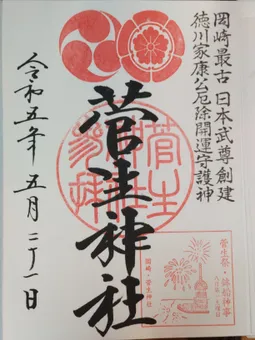 岡崎最古 日本武尊創建
徳川家康公厄除開運守護神
菅生神社
令和五年 五月二十一日
菅生祭・鉾船神事
岡崎・菅生神社